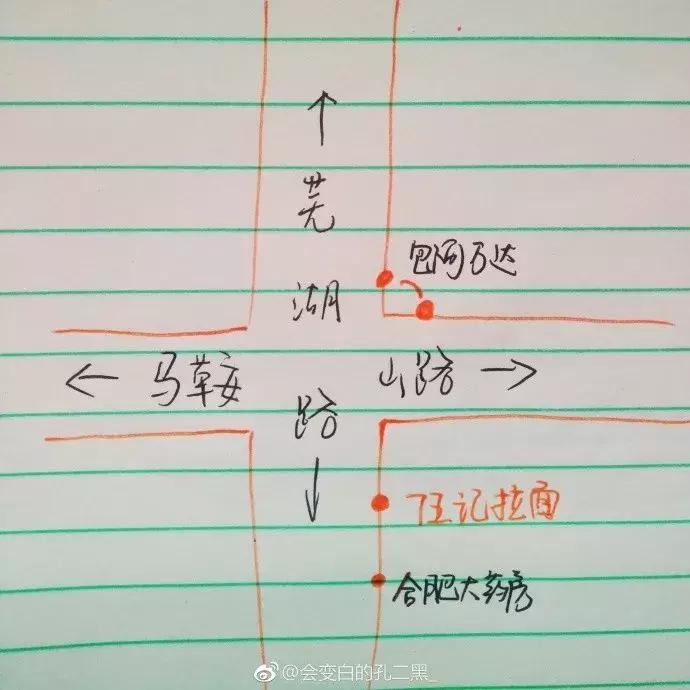 芜
湖
路
包河万达
马鞍 山路
汪记拉面
合肥大药房
@会变白的孔二黑_